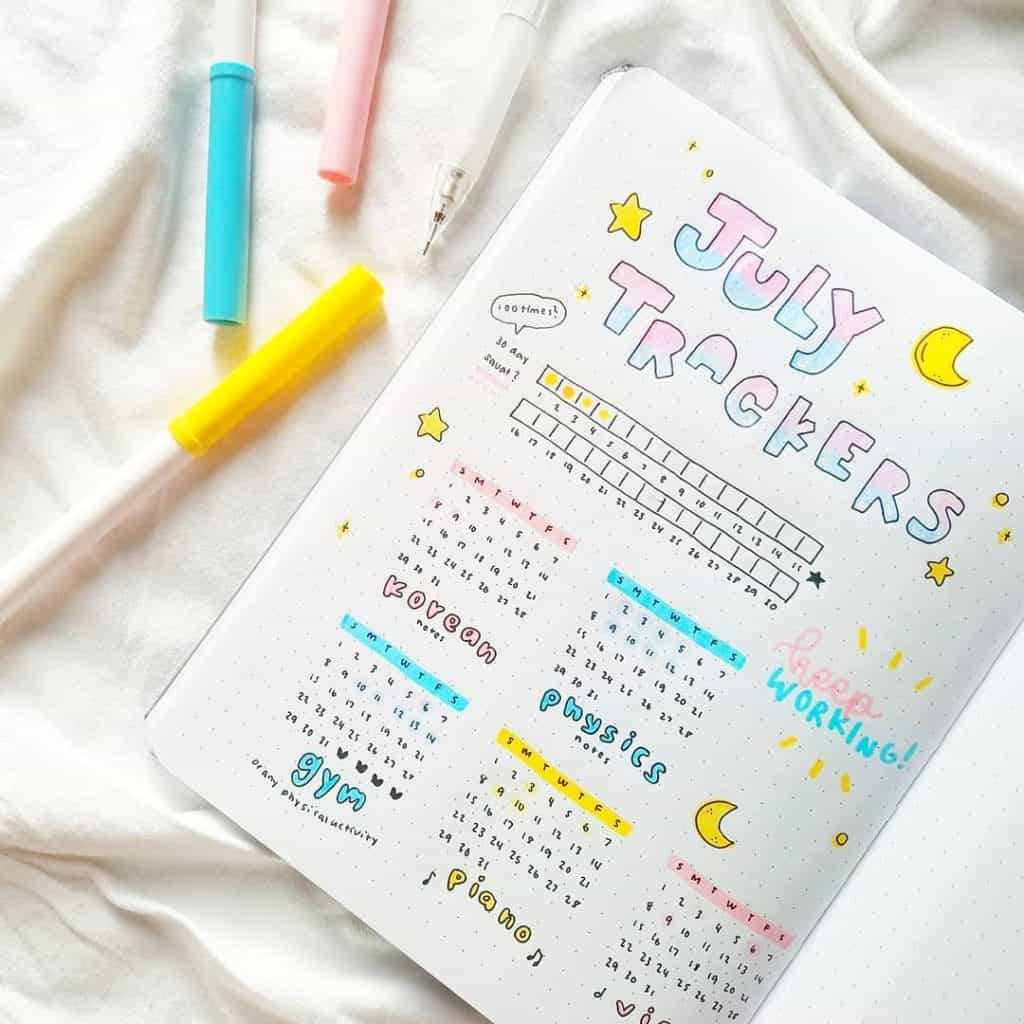 JuLy
TRACKERS
100 times?
30 day
squat?
1 2 3 4 5 6 7 8 9 10 11 12 13 14 15
16 17 18 19 20 21 22 23 24 25 26 27 28 29 30
S M T W T F S
1 2 3 4 5 6 7
8 9 10 11 12 13 14
15 16 17 18 19 20 21
22 23 24 25 26 27 28
29 30 31
Korean
notes
S M T W T F S
1 2 3 4 5 6 7
8 9 10 11 12 13 14
15 16 17 18 19 20 21
22 23 24 25 26 27 28
29 30 31
physics
notes
keep
WORKING!
S M T W T F S
1 2 3 4 5 6 7
8 9 10 11 12 13 14
15 16 17 18 19 20 21
22 23 24 25 26 27 28
29 30 31
gym
or any physical activity
S M T W T F S
1 2 3 4 5 6 7
8 9 10 11 12 13 14
15 16 17 18 19 20 21
22 23 24 25 26 27 28
29 30 31
piano
S M T W T F S
1 2 3 4 5 6 7
8 9 10 11 12 13 14
15 16 17 18 19 20 21
22 23 24 25 26 27 28
29 30 31